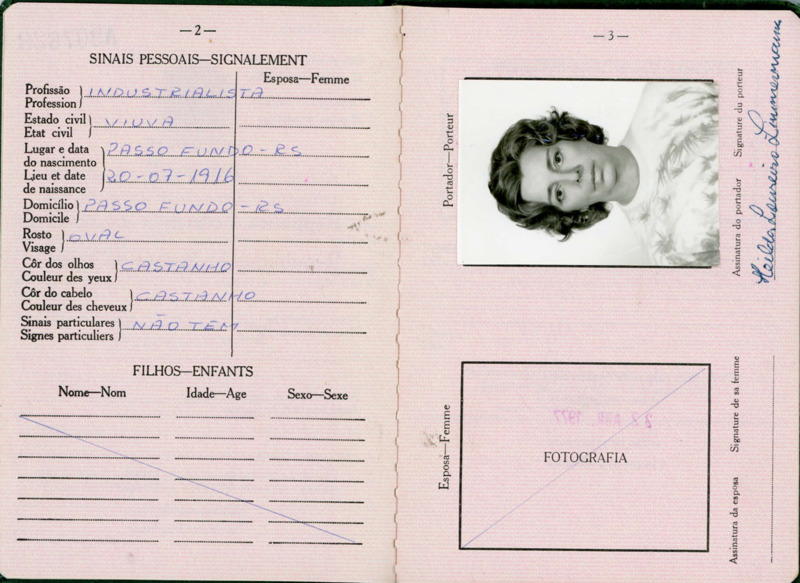 —2—
SINAIS PESSOAIS—SIGNALEMENT
Esposa—Femme
Profissão
Profession
INDUSTRIALISTA
Estado civil
Etat civil
VIUVA
Lugar e data
do nascimento
PASSO FUNDO-RS
Lieu et date
de naissance
20-07-1916
Domicílio
Domicile
PASSO FUNDO-RS
Rosto
Visage
OVAL
Côr dos olhos
Couleur des yeux
CASTANHO
Côr do cabelo
Couleur des cheveux
CASTANHO
Sinais particulares
Signes particuliers
NÃO TEM
FILHOS—ENFANTS
Nome—Nom Idade—Age Sexo—Sexe
—3—
Portador—Porteur
Assinatura do portador Signature du porteur
Esposa—Femme
FOTOGRAFIA
Assinatura da esposa Signature de sa femme